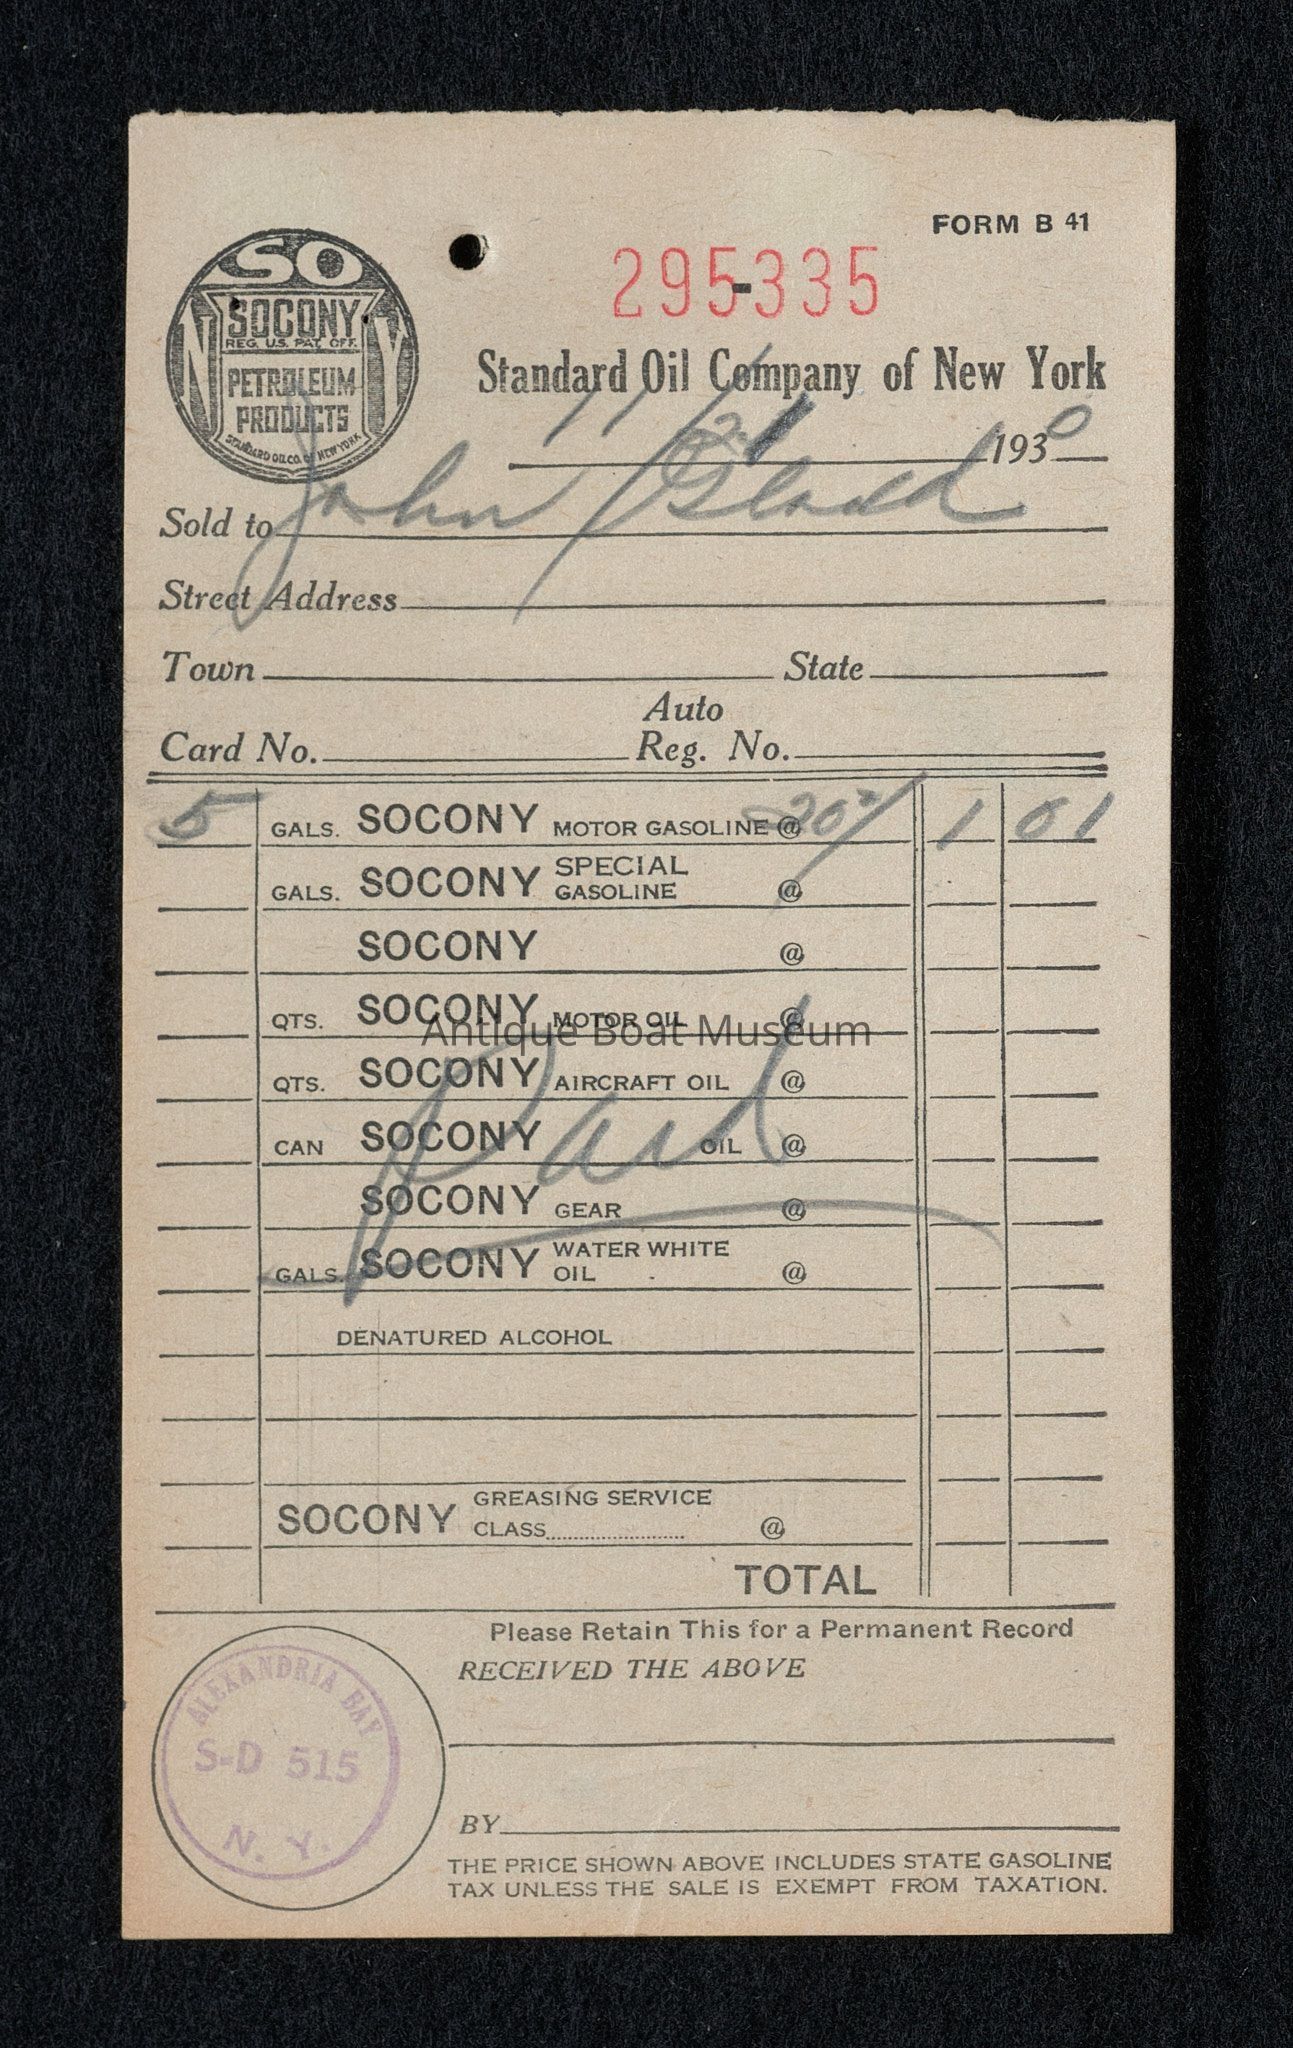 FORM B 41
295-335
SO
NY
SOCONY
REG. U.S. PAT. OFF.
PETROLEUM
PRODUCTS
STANDARD OIL CO. OF NEW YORK
Standard Oil Company of New York
11/21 1930
Sold to John
Street Address
Town State
Auto
Card No. Reg. No.
5 GALS. SOCONY MOTOR GASOLINE @ 1 01
GALS. SOCONY SPECIAL GASOLINE @
SOCONY @
QTS. SOCONY MOTOR OIL @
Antique Boat Museum
QTS. SOCONY AIRCRAFT OIL @
CAN SOCONY OIL @
Paid
SOCONY GEAR @
GALS. SOCONY WATER WHITE OIL @
DENATURED ALCOHOL
SOCONY GREASING SERVICE
CLASS @
TOTAL
Please Retain This for a Permanent Record
RECEIVED THE ABOVE
ALEXANDRIA BAY
S-D 515
N. Y.
BY
THE PRICE SHOWN ABOVE INCLUDES STATE GASOLINE
TAX UNLESS THE SALE IS EXEMPT FROM TAXATION.